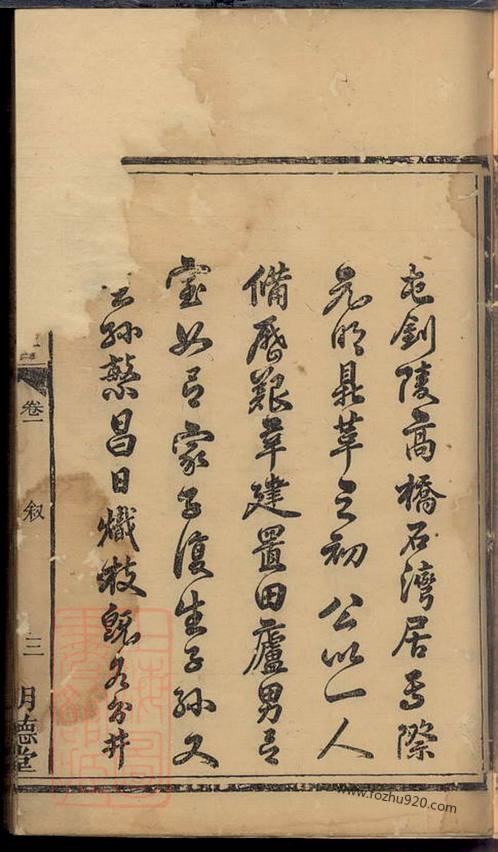 屯釗陵高橋石灣居焉際
元明鼎革之初公以一人
備歷艱辛建置田廬男有
室女有家子復生子孫又
生孫繁昌日熾枝
各分井
卷一
叙
三
明德堂
www.fozhu920.com